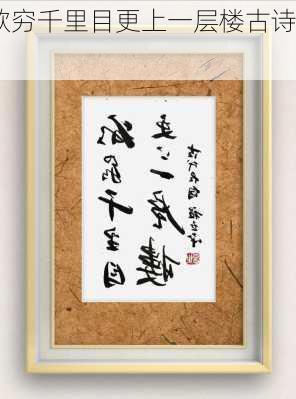 欲穷千里目更上一层楼古诗
欲窮千里目
更上一层樓